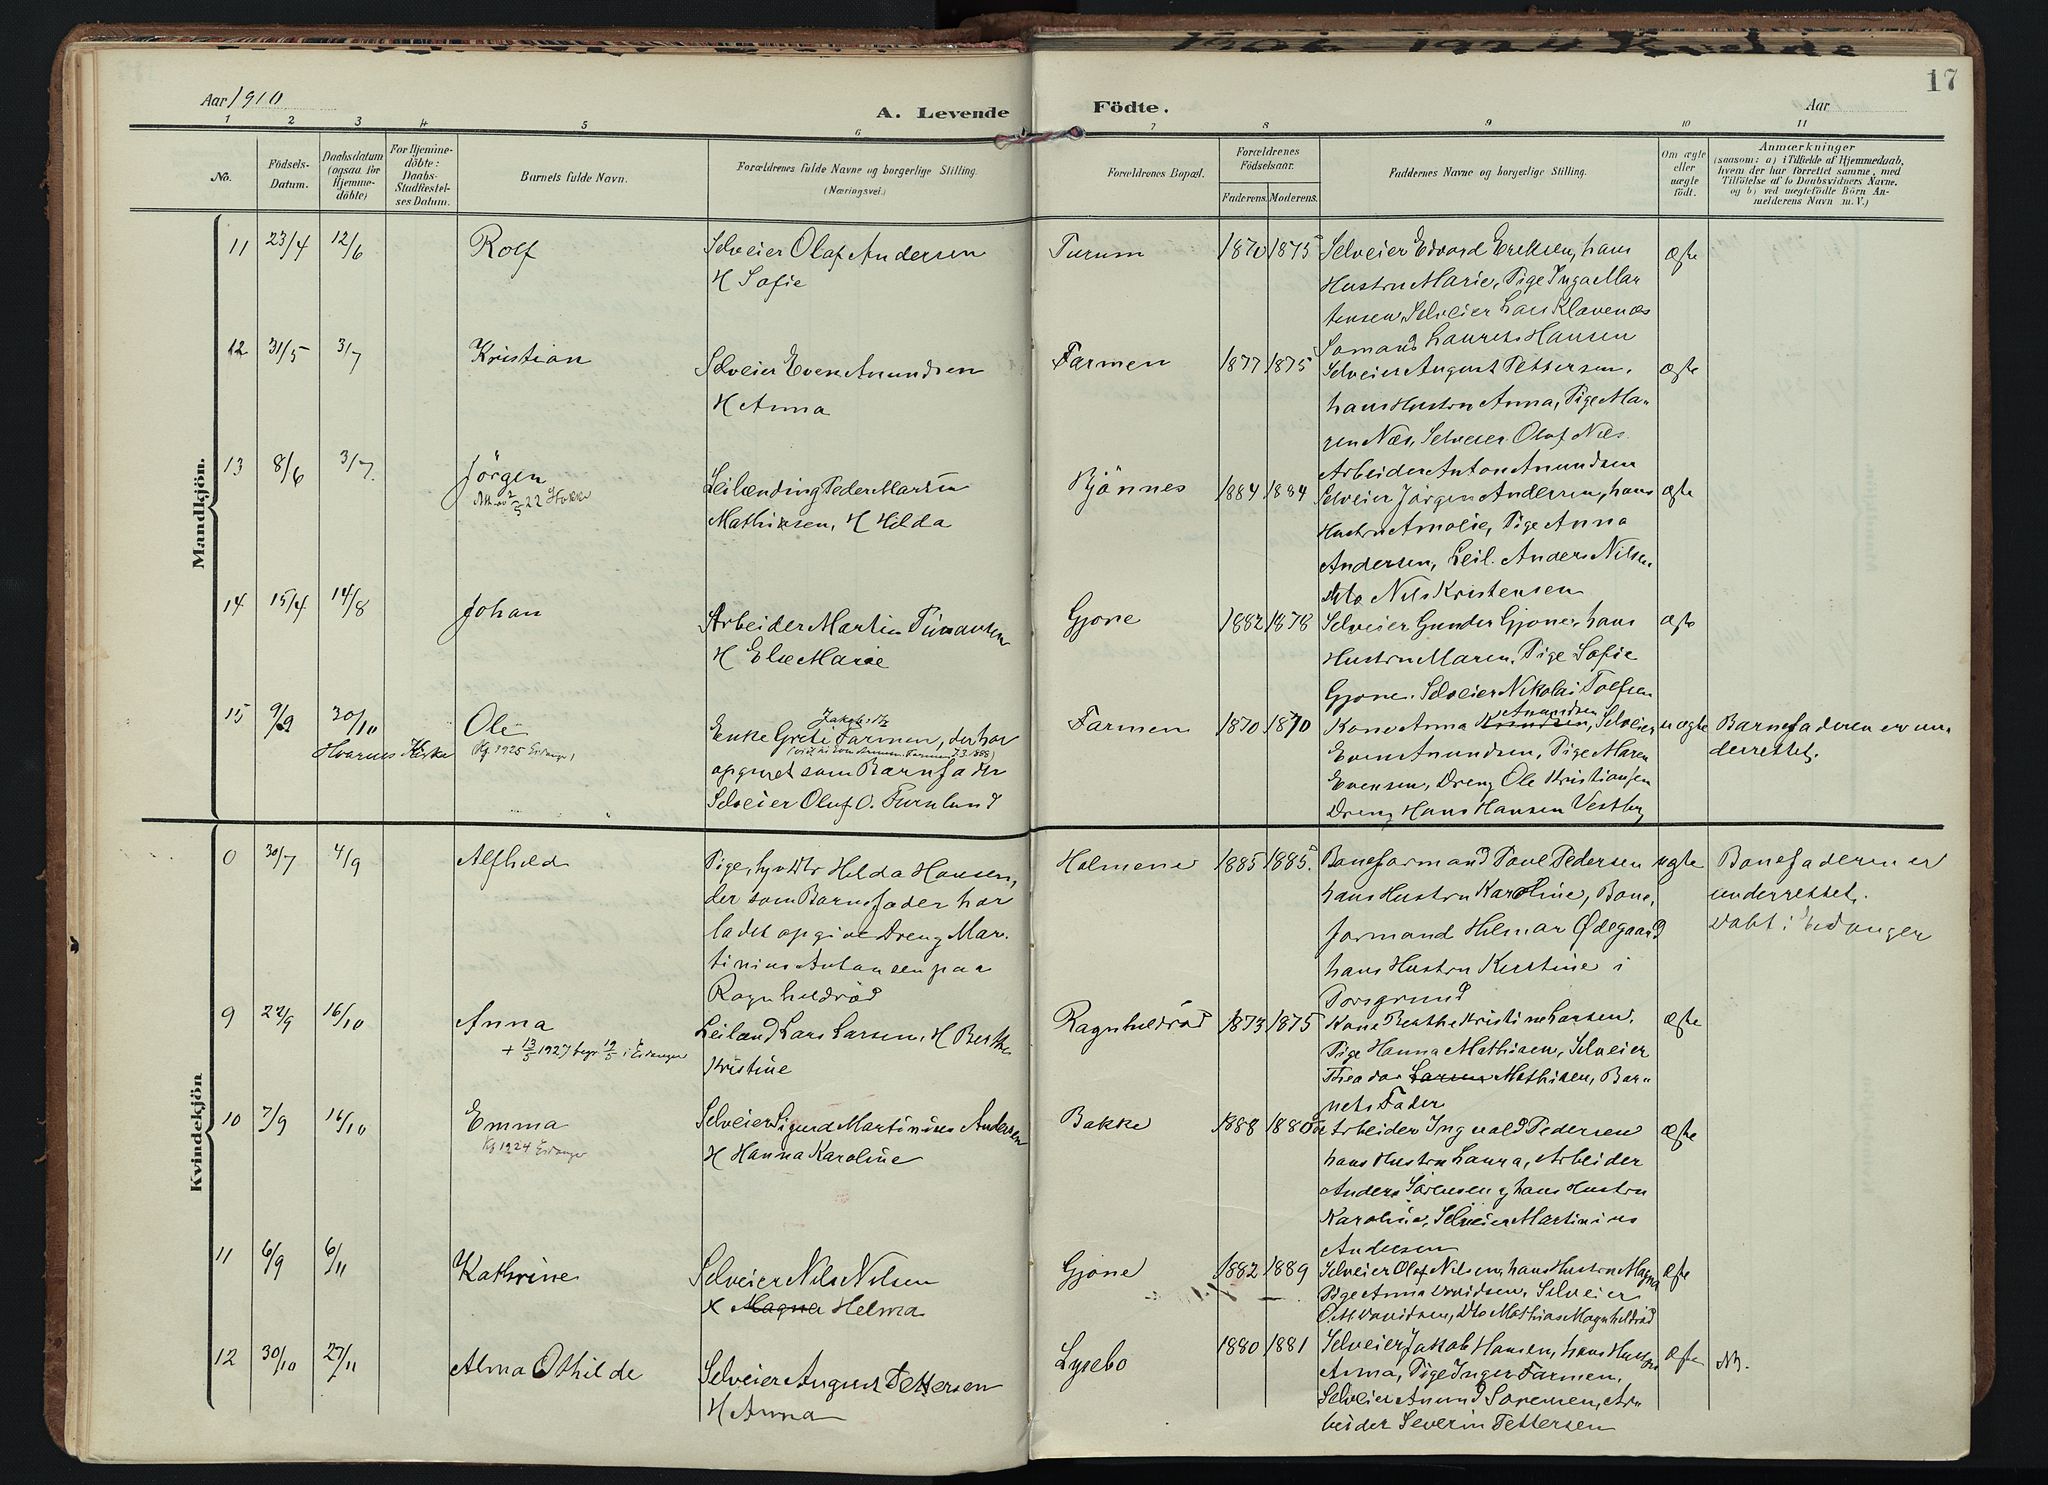 1906 1924 Kvelde
17
Aar 1910
A. Levende
Födte.
Aar
1 2 3 4 5 6 7 8 9 10 11
No.
Födsels-
Datum.
Daabsdatum
(ogsaa for
Hjemme-
döbte)
For Hjemme-
döbte:
Daabs-
Stadfæstel-
ses Datum.
Barnets fulde Navn.
Forældrenes fulde Navne og borgerlige Stilling.
(Næringsvei.)
Forældrenes Bopæl.
Forældrenes
Födselsaar.
Faderens. Moderens.
Faddernes Navne og borgerlige Stilling.
Om ægte
eller
uægte
födt.
Anmærkninger
(saasom: a) i Tilfælde af Hjemmedaab,
hvem der har forrettet samme, med
Tilföielse af to Daabsvidners Navne,
og b) ved uægtefödte Börn An-
melderens Navn m. V.)
Mandkjön.
11 23/4 12/6 Rolf
Selveier Olaf Andersen
H Sofie
Turum
1870 1875
Selveier Edvard Eriksen, hans
Hustru Marie, Pige Inga Mar
tensen, Selveier Lars Klavenæs
Sømand Laurits Hansen
ægte
12 31/5 3/7 Kristian
Selveier Even Amundsen
H Anna
Farmen
1877 1875
Selveier August Pettersen,
hans Hustru Anna, Pige Ma-
ren Næs, Selveier Olaf Næs
Arbeider Anton Amundsen
ægte
13 8/6 3/7. Jörgen
22
Leilænding Peder Martin
Mathisen, H Hilda
Bjönnes
1884 1884
Selveier Jörgen Andersen, hans
Hustru Amalie, Pige Anna
Andersen, Leil. Anders Nilsen
dito Nils Kristensen
ægte
14 15/4 14/8 Johan
Arbeider Martin
H Else Marie
Gjone
1882 1878
Selveier Gunder Gjone, hans
Hustru Maren, Pige Sofie
Gjone, Selveier Nikolai Tolfsen
ægte
15 9/9 30/10 Ole
Hvarnes Kirke
Kg. 1925 Eidanger
Jakobsdtr
Enke Grete Farmen, der har
opgivet som Barnefader
Selveier Oluf O. Furulund
Farmen
1870 1870
Amundsen
Kone Anna Selveier
Even Amundsen, Pige Maren
Evensen, Dreng Ole Kristiansen
Dreng Hans Hansen Vestby
uægte
Barnefaderen er un-
derrettet.
Kvindekjön
0 30/7 4/9 Alfhild
Pige, Hilda Hansen,
der som Barnefader har
ladet opgive Dreng Mar-
tinius Antonsen paa
Ragnhildröd
Holmene
1885 1885.
Baneformand Paul Pedersen
hans Hustru Karoline, Bane-
formand Hilmar Ødegaard
hans Hustru Kirstine i
Porsgrund
uægte
Barnefaderen er
underrettet.
Döbt i Eidanger
9 22/9 16/10 Anna
+ 13/5 1927 begr. 19/5 i Eidanger
Leilænd Lars Larsen, H Berthe
Kristine
Ragnhildröd
1873 1875
Kone Berthe Kristine Larsen,
Pige Hanna Mathisen, Selveier
Theodor Larsen Mathisen, Bar-
nets Fader
ægte
10 7/9 16/10 Emma
Kg 1924 Eidanger
Selveier Sigurd Martinius Andersen
H Hanna Karoline
Bakke
1888 1880
Arbeider Ingvald Pedersen
hans Hustru Laura, Arbeider
Anders Sörensen og hans Hustru
Karoline, Selveier Martinius
Andersen
ægte
11 6/9 6/11 Kathrine
Selveier Nils Nilsen
H Magna Helma
Gjone
1882 1889
Selveier Olaf Nilsen, hans Hustru Magna
Pige Anna Davidsen, Selveier
O. M. Davidsen, Dto Mathias Magnhildröd
ægte
12 30/10 27/11 Alma Othilde
Selveier August Pettersen
H Anna
Lysebo
1880 1881
Selveier Jakob Hansen, hans Hustru
Anna, Pige Inger Farmen,
Selveier Amund Sörensen, Ar-
beider Severin Pettersen
ægte